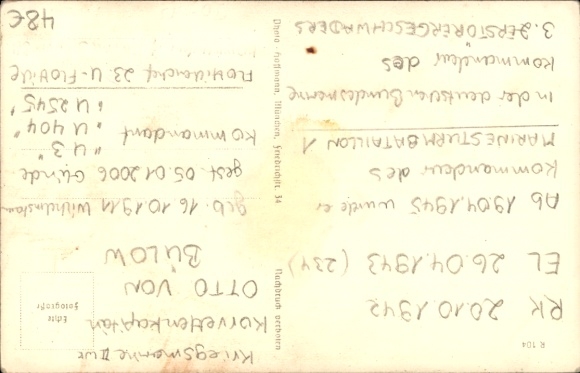 R 104
RK 20.10.1942
EL 26.04.1943 (234)
Ab 19.04.1945 wurde er
Kommandeur des
MARINESTURMBATAILLON 1
In der deutschen Bundesmarine
Kommandeur des
3. ZERSTÖRERGESCHWADERS
Photo-Hoffmann, München, Friedrichstr. 34
Nachdruck verboten
Kriegsmarine II
Korvettenkapitän
OTTO VON
BÜLOW
Echte
Fotografie
geb. 16.10.1911
gest. 05.01.2006
"U 3"
Kommandant "U 404"
"U 2545"
23 U-Flottille
48€